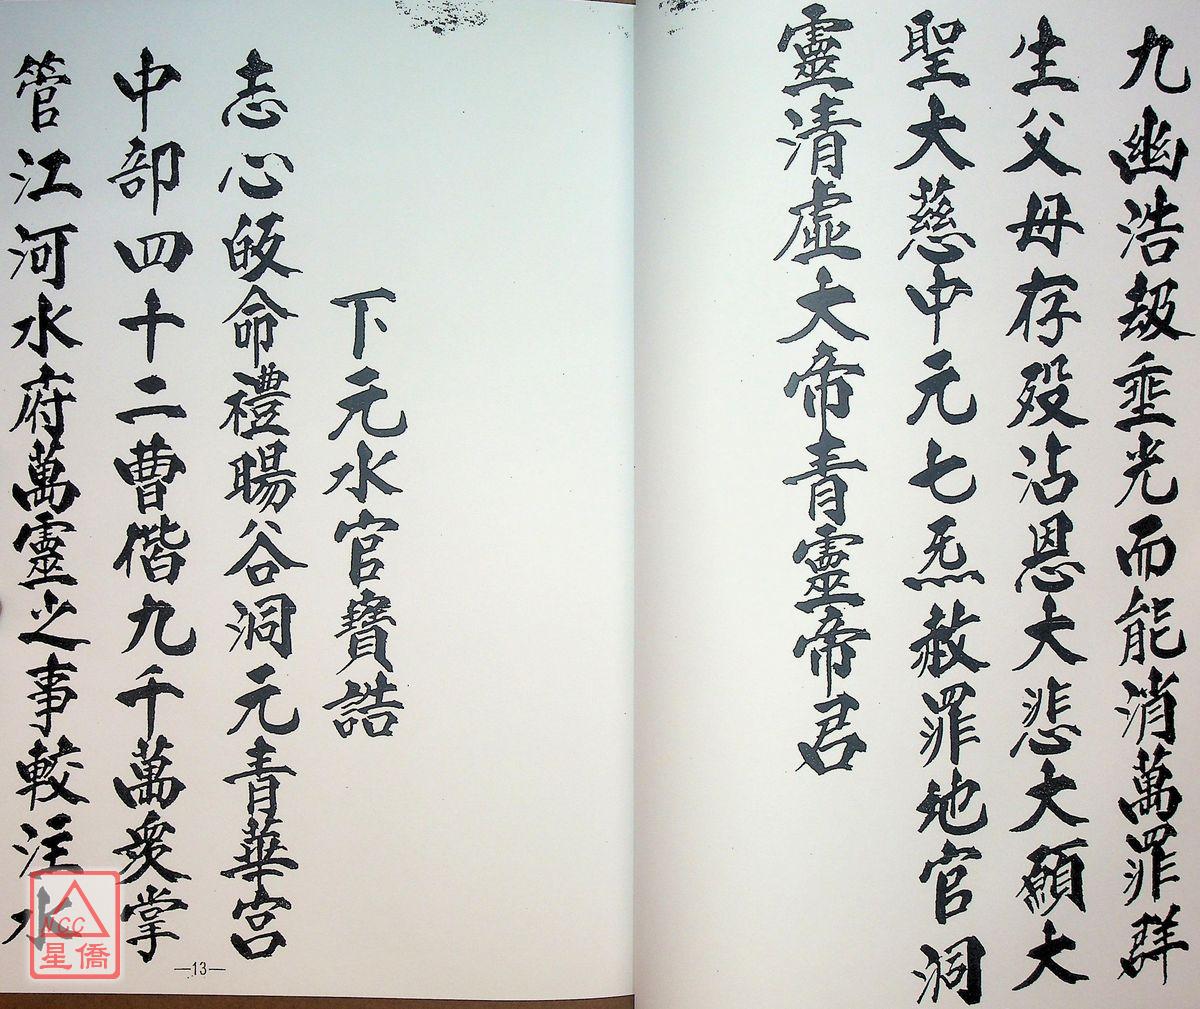 九幽浩劫垂光而能消萬罪群
生父母存歿沾恩大悲大願大
聖大慈中元七炁赦罪地官洞
靈清虛大帝青靈帝君
下元水官寶誥
志心皈命禮暘谷洞元青華宮
中部四十二曹偕九千萬衆掌
管江河水府萬靈之事較注水
—13—
NCC
星僑